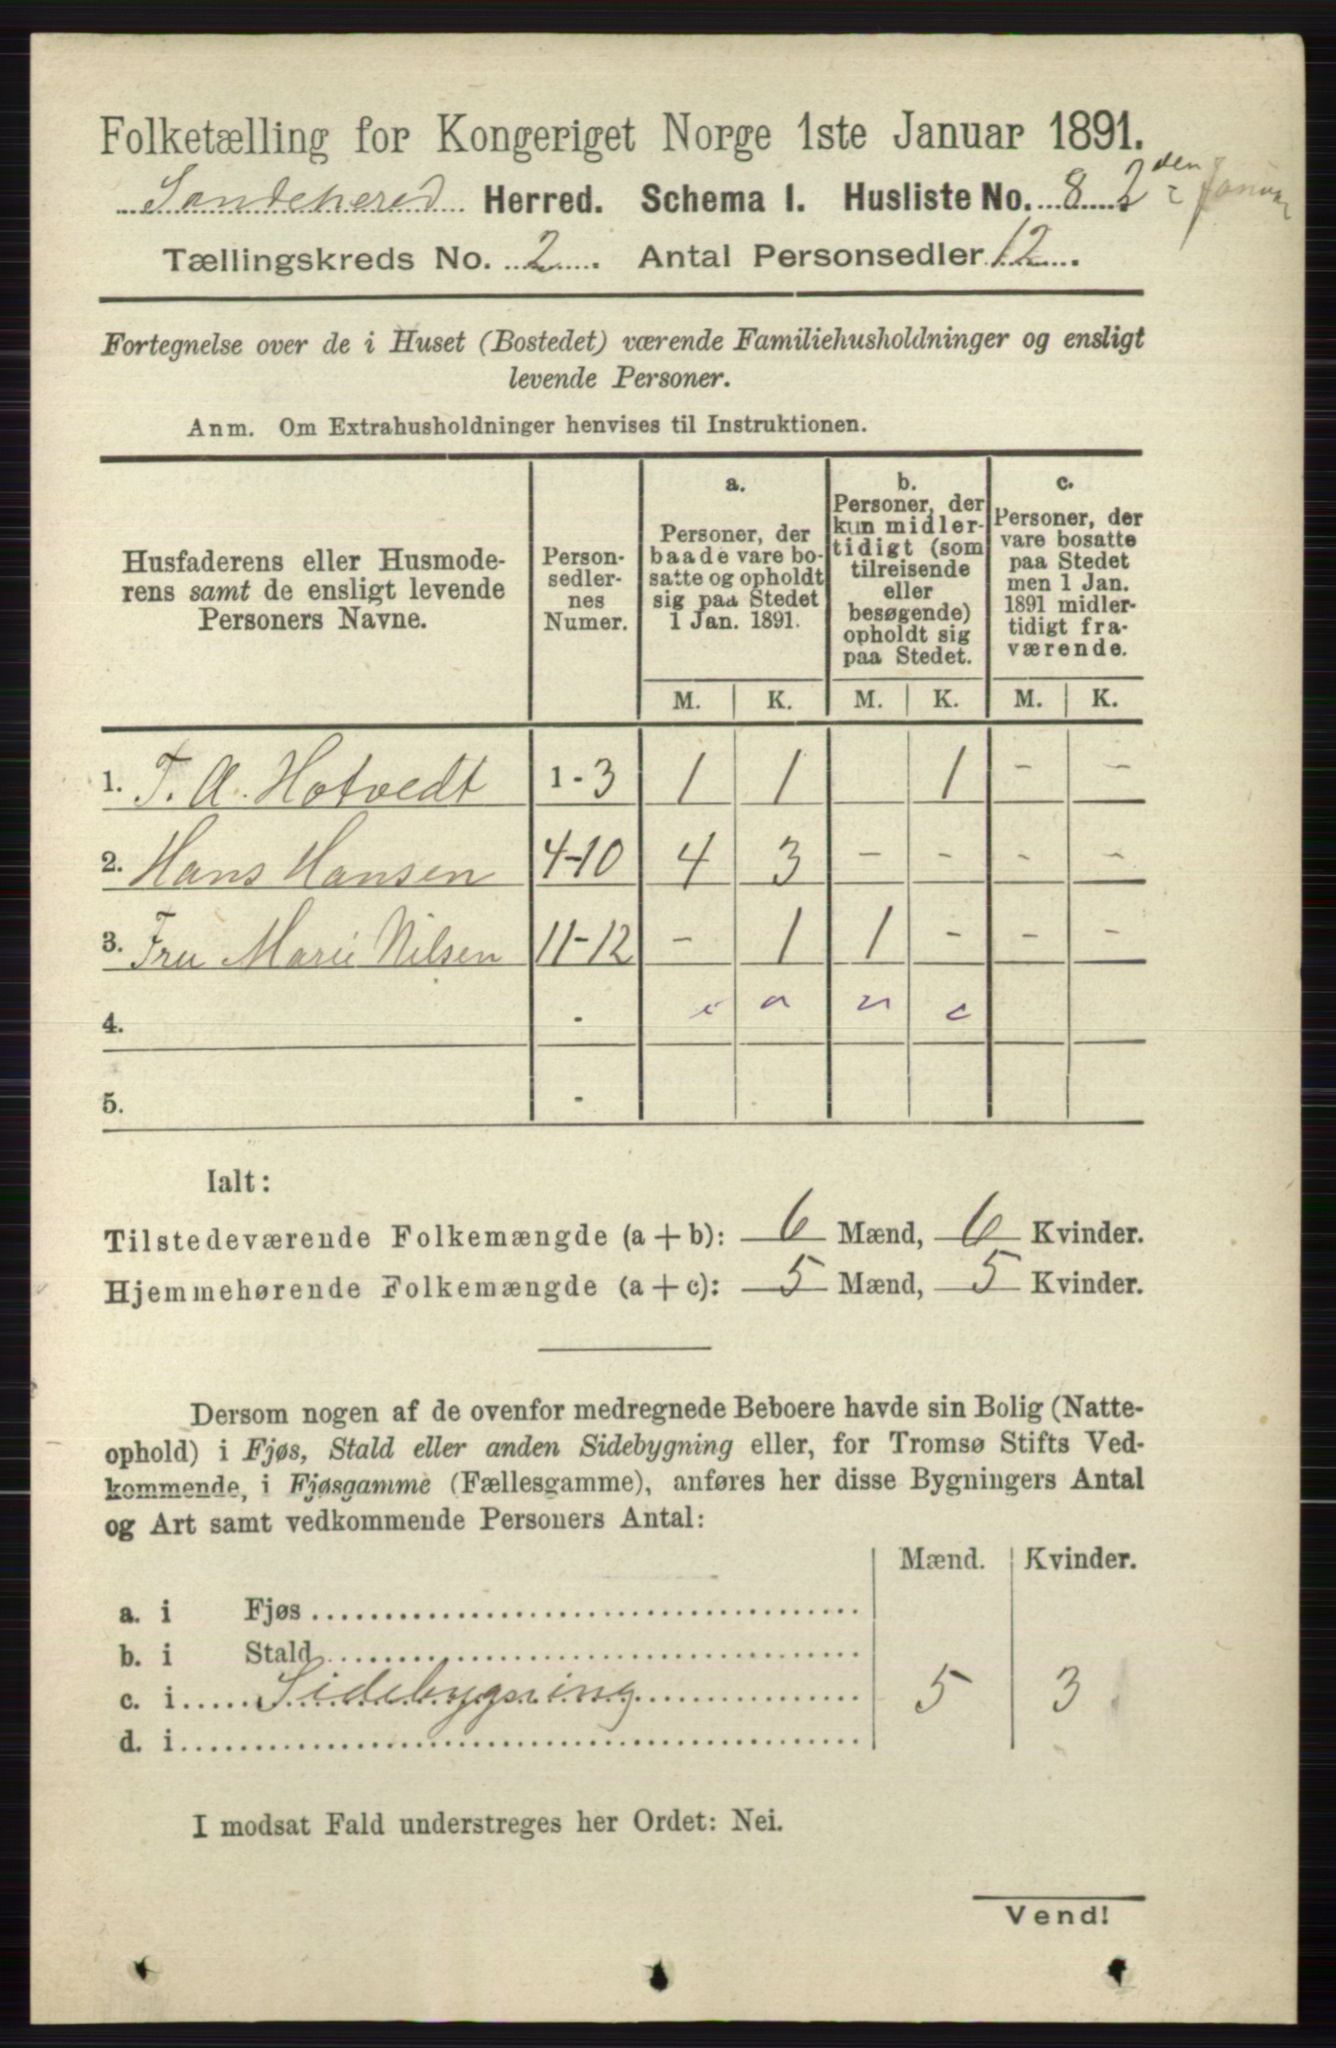 Folketælling for Kongeriget Norge 1ste Januar 1891.
Sandeherred Herred. Schema I. Husliste No. 8 2den Januar
Tællingskreds No. 2. Antal Personsedler 12.
Fortegnelse over de i Huset (Bostedet) værende Familiehusholdninger og ensligt
levende Personer.
Anm. Om Extrahusholdninger henvises til Instruktionen.
Husfaderens eller Husmode-
rens samt de ensligt levende
Personers Navne.
Person-
sedler-
nes
Numer.
a.
Personer, der
baade vare bo-
satte og opholdt
sig paa Stedet
1 Jan. 1891.
b.
Personer, der
kun midler-
tidigt (som
tilreisende
eller
besøgende)
opholdt sig
paa Stedet.
c.
Personer, der
vare bosatte
paa Stedet
men 1 Jan.
1891 midler-
tidigt fra-
værende.
M. K. M. K. M. K.
1. T. A. Hotvedt 1-3 1 1 1 - -
2. Hans Hansen 4-10 4 3 - - - -
3. Fru Marie Nilsen 11-12 - 1 1 - - -
4. -
5. -
Ialt:
Tilstedeværende Folkemængde (a + b): 6 Mænd, 6 Kvinder.
Hjemmehørende Folkemængde (a + c): 5 Mænd, 5 Kvinder.
Dersom nogen af de ovenfor medregnede Beboere havde sin Bolig (Natte-
ophold) i Fjøs, Stald eller anden Sidebygning eller, for Tromsø Stifts Ved-
kommende, i Fjøsgamme (Fællesgamme), anføres her disse Bygningers Antal
og Art samt vedkommende Personers Antal:
Mænd. Kvinder.
a. i Fjøs
b. i Stald
c. i Sidebygning 5 3
d. i
I modsat Fald understreges her Ordet: Nei.
Vend!